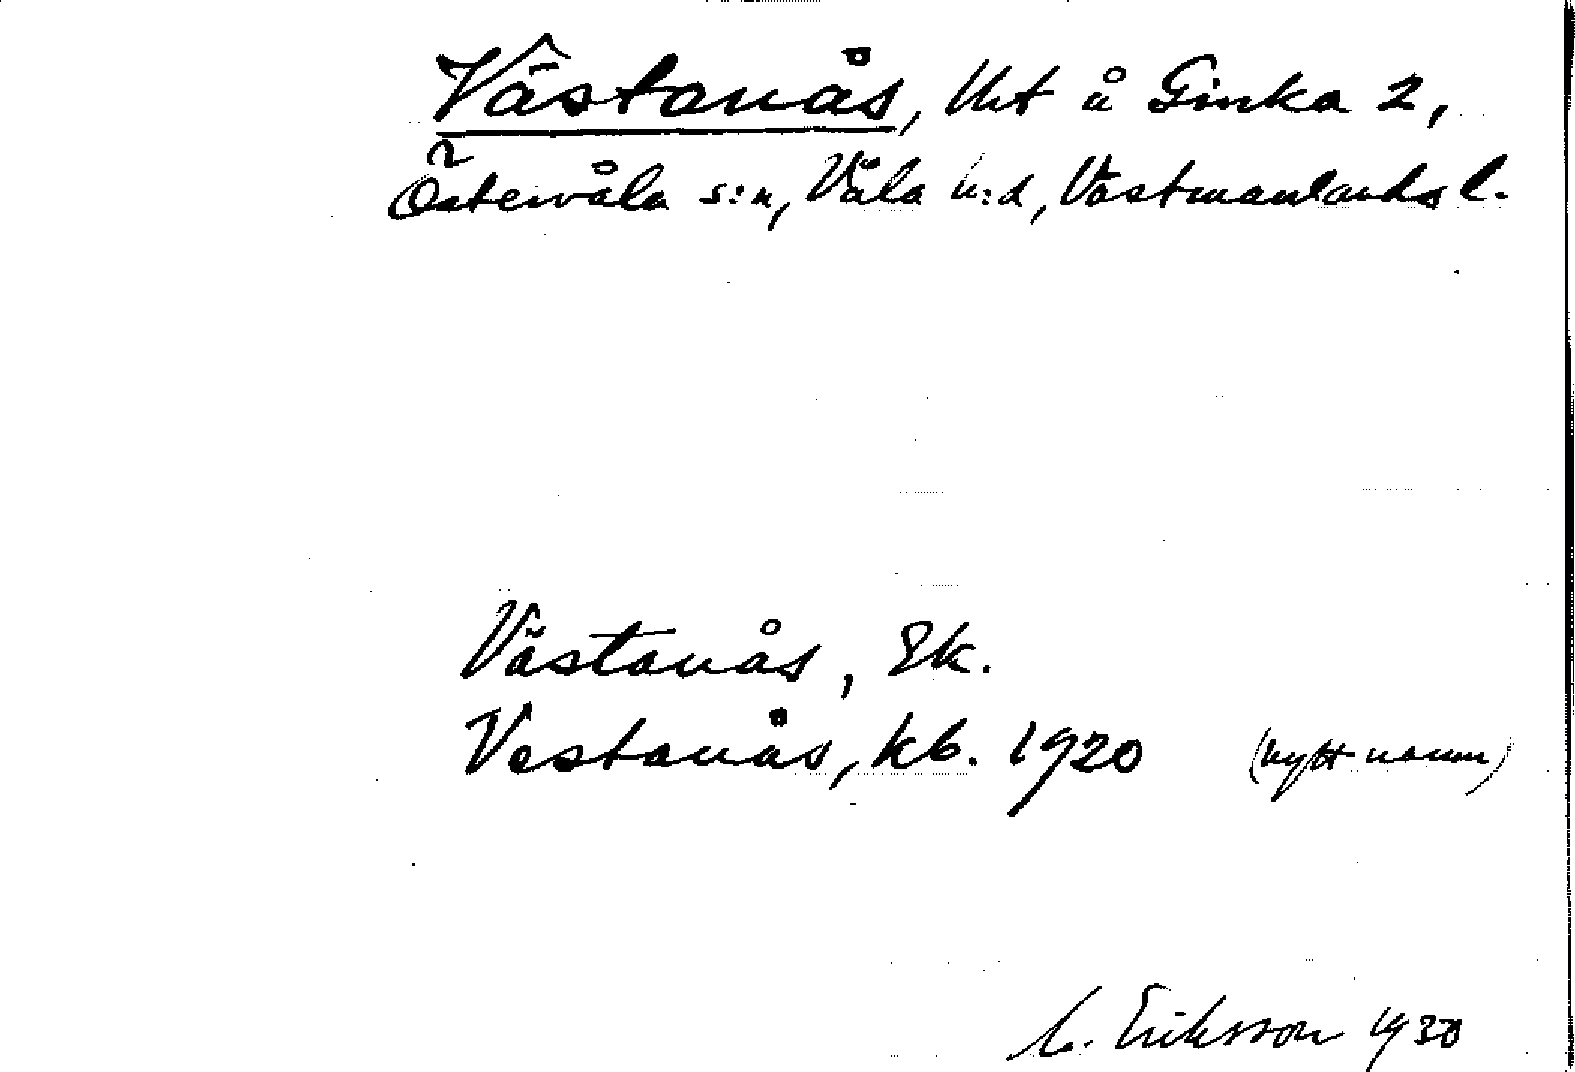 Västanås, lht å Ginka 2,
Östervåla s:n, Våla h:d, Västmanlands l.
Västanås, Ek.
Vestanås, kb. 1920 (nytt namn)
Eriksson 1930